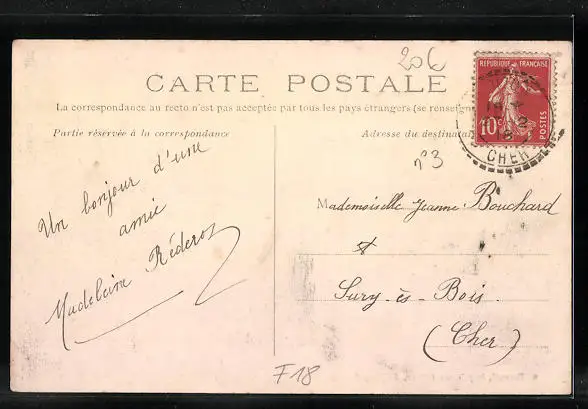 20€
CARTE POSTALE
La correspondance au recto n'est pas acceptée par tous les pays étrangers (se renseign
Partie réservée à la correspondance
Adresse du destinatai
RÉPUBLIQUE FRANÇAISE
10c
POSTES
CHER
n°3
Un bonjour d'une
amie
Madeleine
Mademoiselle Jeanne Bouchard
Sury-ès-Bois.
(Cher)
F18